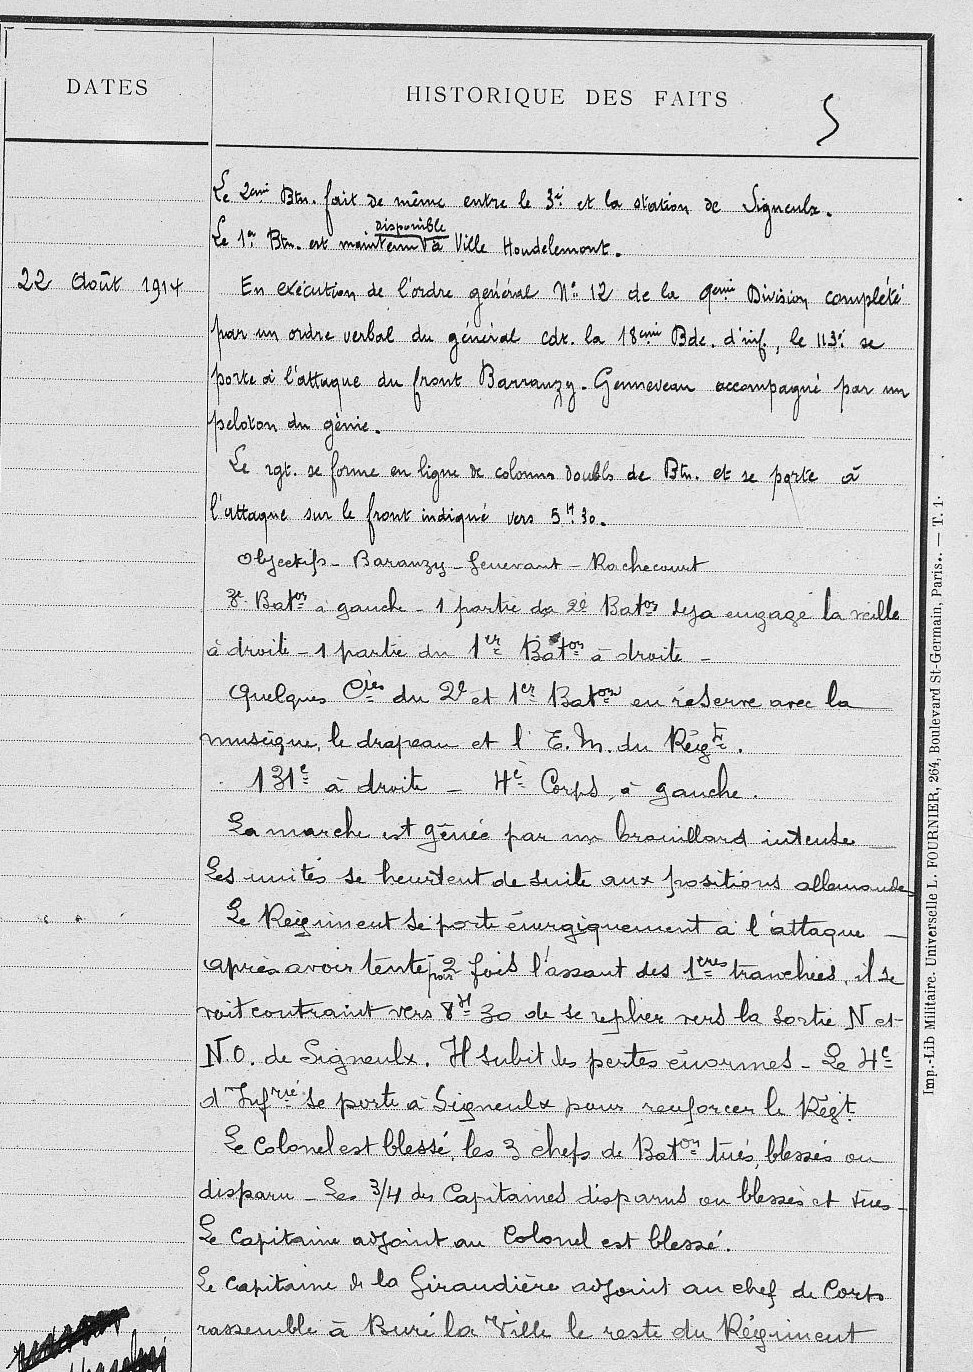 DATES
HISTORIQUE DES FAITS
5
Le 2eme Btn. fait de même entre le 3e et la station de Signeulx.
disponible
Le 1er Btn. est maintenu à Ville Houdelemont.
22 Août 1914
En exécution de l'ordre général No 12 de la 9eme Division complété
par un ordre verbal du général Cdt. la 18eme Bde. d'inf., le 113e se
porte à l'attaque du front Barranzy-Genneveau accompagné par un
peloton du génie.
Le rgt. se forme en ligne de colonnes doubles de Btn. et se porte à
l'attaque sur le front indiqué vers 5H30.
Objectifs - Baranzy - Genevant - Rachecourt
3e Baton à gauche - 1 partie du 2e Baton deja engagé la veille
à droite - 1 partie du 1er Baton à droite -
Quelques Cies du 2e et 1er Baton en réserve avec la
musique, le drapeau et l'E.M. du Régt.
131e à droite - 4e Corps à gauche.
La marche est gênée par un brouillard intense
Les unités se heurtent de suite aux positions allemandes
Le Régiment se porte énergiquement à l'attaque -
après avoir tenté par 2 fois l'assaut des 1eres tranchées, il se
voit contraint vers 8H30 de se replier vers la sortie N et
N.O. de Signeulx. Il subit des pertes énormes - Le 4e
d'Infrie se porte à Signeulx pour renforcer le Régt.
Le Colonel est blessé, les 3 chefs de Baton tués, blessés ou
disparu - Les 3/4 des Capitaines disparus ou blessés et tués -
Le Capitaine adjoint au Colonel est blessé.
Le Capitaine de la Giraudière adjoint au chef de Corps
rassemble à Buré la Ville le reste du Régiment
Imp.-Lib Militaire. Universelle L. FOURNIER, 264, Boulevard St-Germain, Paris. — T. 1.